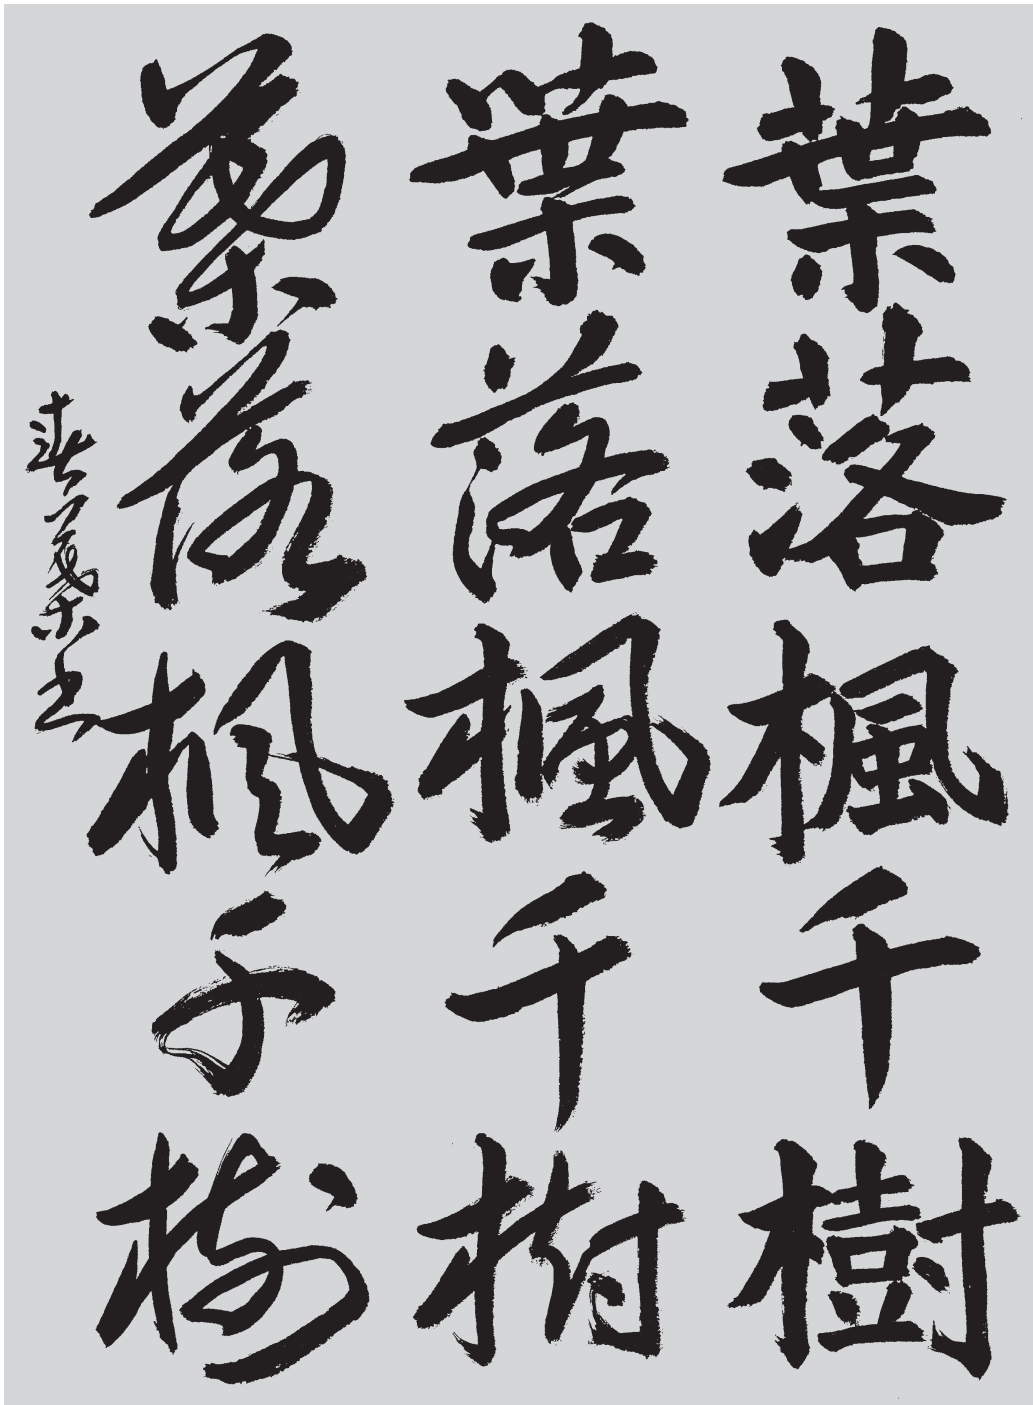 葉落楓千樹
葉落楓千樹
葉落楓千樹